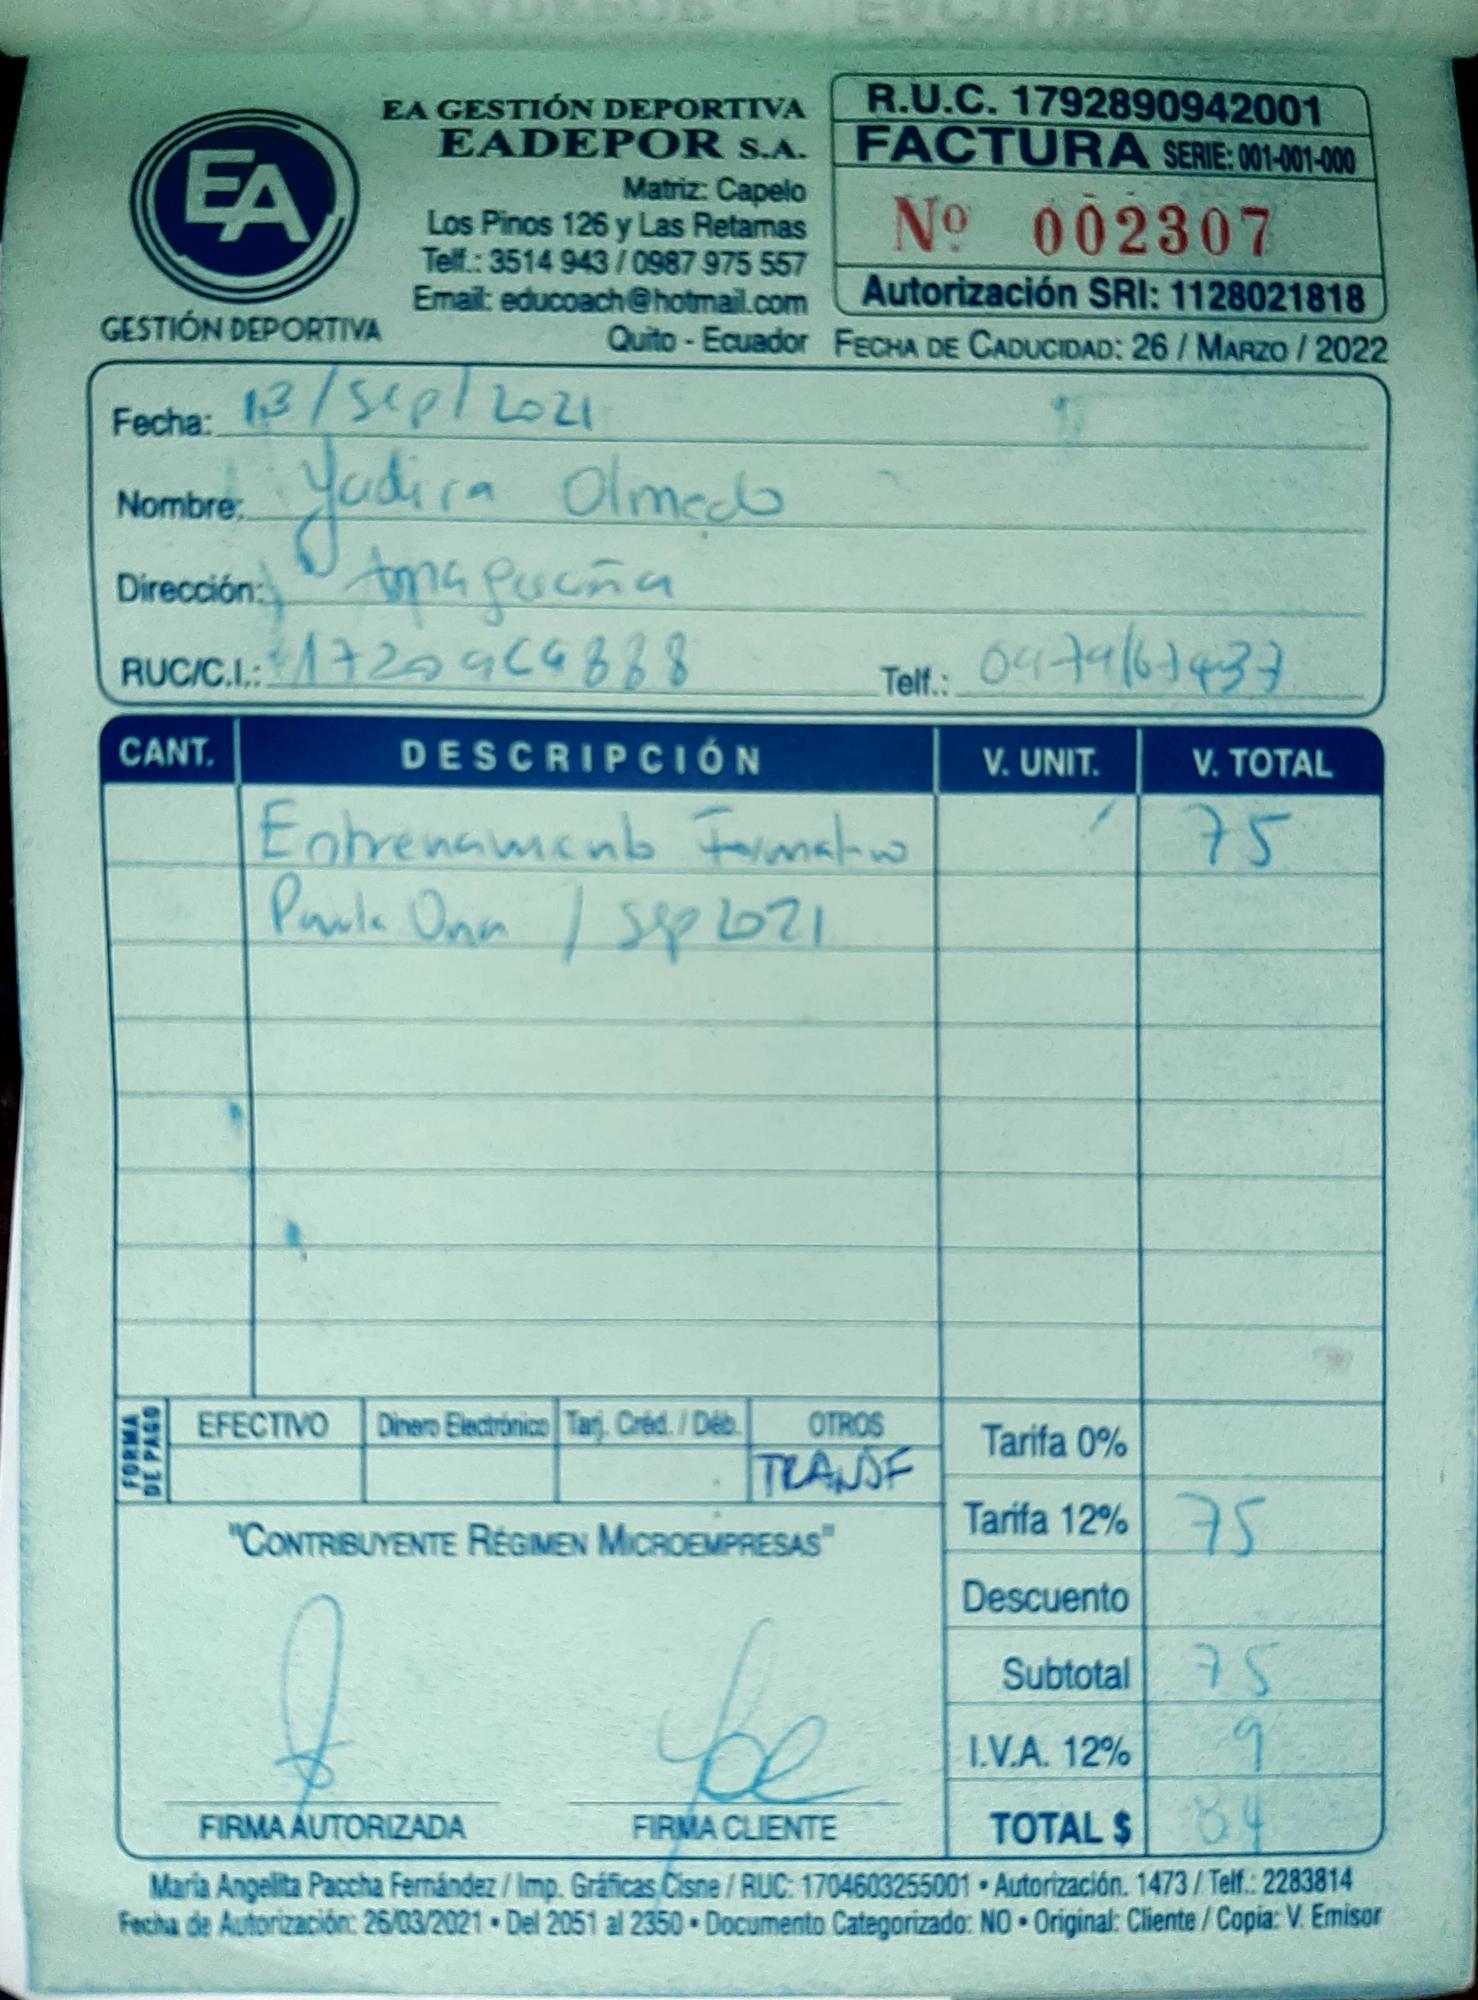 EA GESTIÓN DEPORTIVA
EADEPOR S.A.
Matriz: Capelo
Los Pinos 126 y Las Retamas
Telf.: 3514 943 / 0987 975 557
Email: educoach@hotmail.com
Quito - Ecuador
EA
GESTIÓN DEPORTIVA
R.U.C. 1792890942001
FACTURA SERIE: 001-001-000
Nº 002307
Autorización SRI: 1128021818
FECHA DE CADUCIDAD: 26 / MARZO / 2022
Fecha: 13/Sep/2021
Nombre: Yadira Olmedo
Dirección:
RUC/C.I.:
Telf.:
CANT. DESCRIPCIÓN V. UNIT. V. TOTAL
Entrenamiento Formativo 75
Paula Ona / Sep 2021
FORMA DE PAGO
EFECTIVO Dinero Electrónico Tarj. Créd. / Déb. OTROS
TRANSF
Tarifa 0%
Tarifa 12% 75
Descuento
Subtotal 75
I.V.A. 12% 9
TOTAL $ 84
"CONTRIBUYENTE RÉGIMEN MICROEMPRESAS"
FIRMA AUTORIZADA FIRMA CLIENTE
María Angelita Paccha Fernández / Imp. Gráficas Cisne / RUC: 1704603255001 • Autorización. 1473 / Telf.: 2283814
Fecha de Autorización: 26/03/2021 • Del 2051 al 2350 • Documento Categorizado: NO • Original: Cliente / Copia: V. Emisor